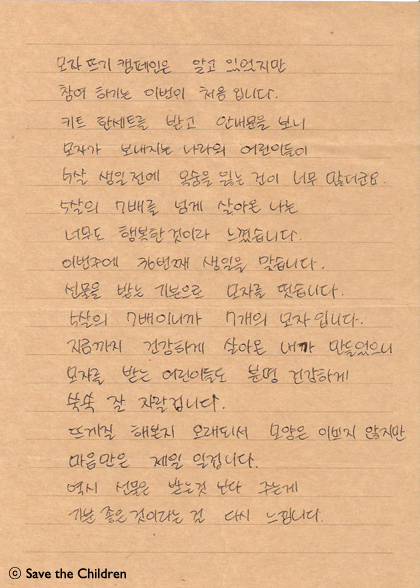 모자 뜨기 캠페인은 알고 있었지만
참여 하기는 이번이 처음 입니다.
키트 한세트를 받고 안내문을 보니
모자가 보내지는 나라의 어린이들이
5살 생일전에 목숨을 잃는 것이 너무 많더군요.
5살의 7배를 넘게 살아온 나는
너무도 행복한 것이라 느꼈습니다.
이번주에 36번째 생일을 맞습니다.
선물을 받는 기분으로 모자를 떴습니다.
5살의 7배이니까 7개의 모자 입니다.
지금까지 건강하게 살아온 내가 만들었으니
모자를 받는 어린이들도 분명 건강하게
쑥쑥 잘 자랄겁니다.
뜨개질 해본지 오래되서 모양은 이쁘지 않지만
마음만은 제일 일겁니다.
역시 선물은 받는것 보다 주는게
기분 좋은 것이라는 걸 다시 느낍니다.
ⓒ Save the Children